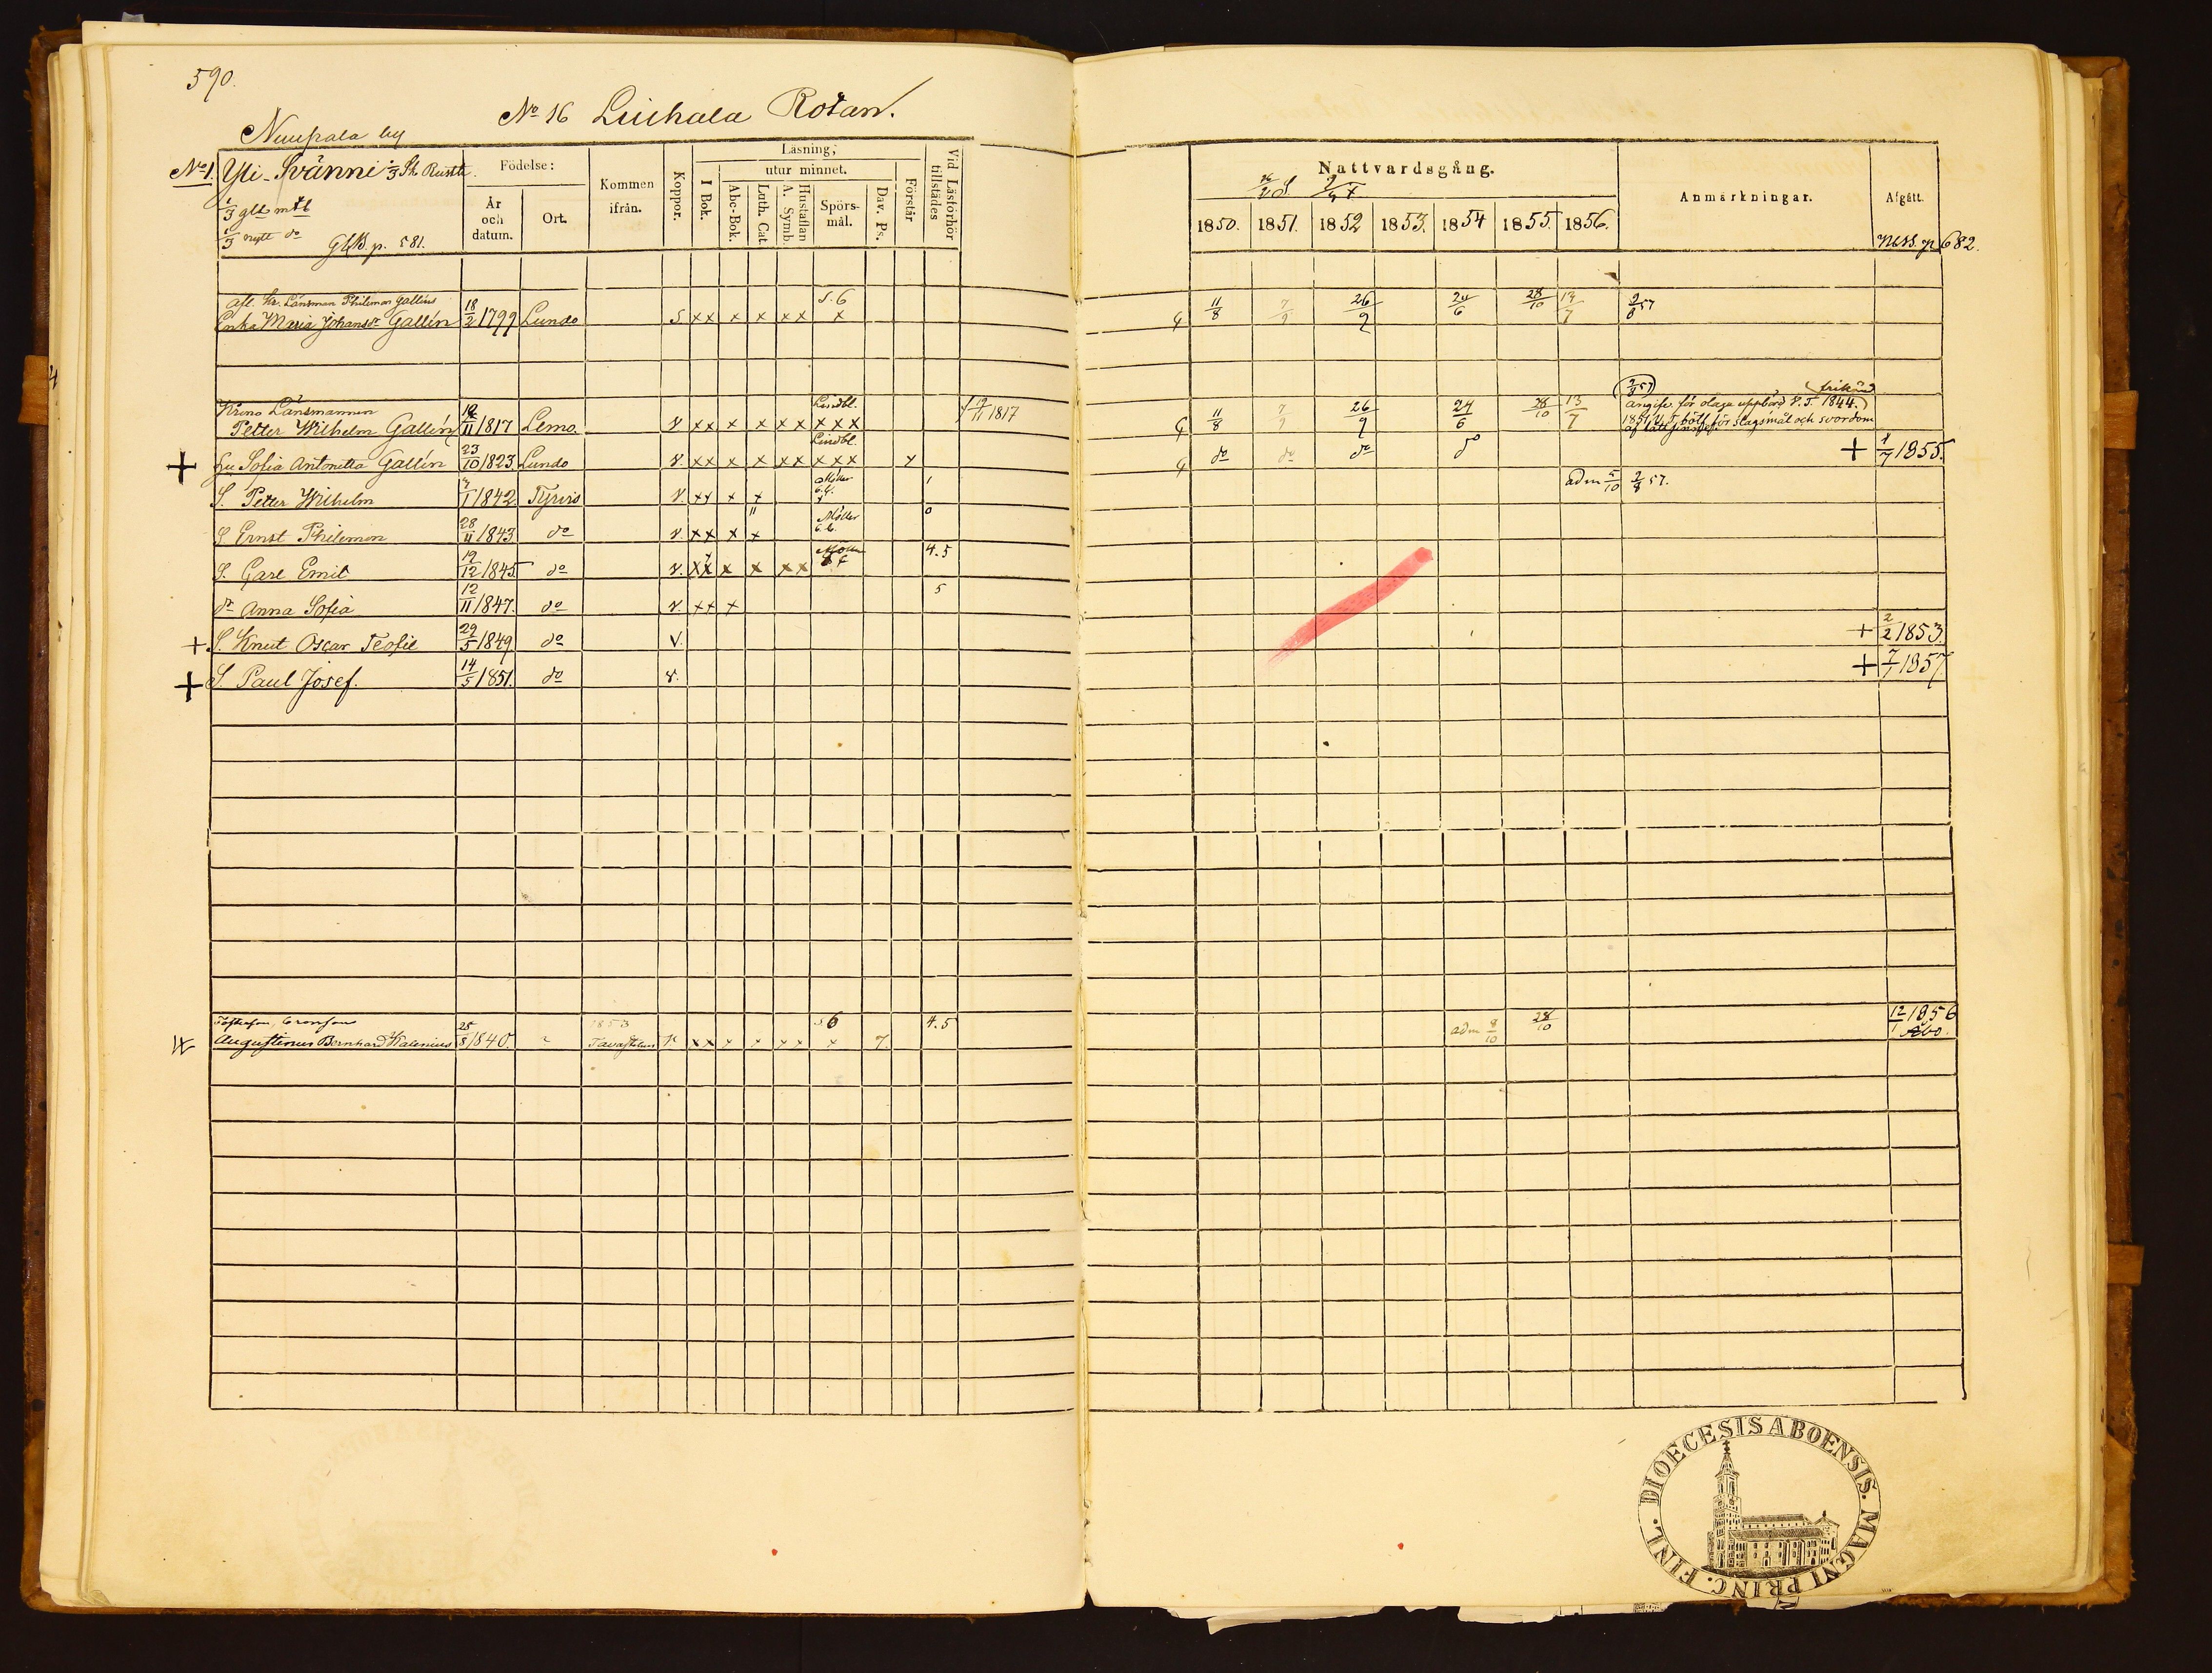 590.
No 16 Liuhala Rotan.
Nuupala by
No 1. Yli-Svänni 1/3 Sk. Rusth.
1/3 glt mtl
1/3 nytt do
GKB. p. 581.
Födelse:
År och datum.
Ort.
Kommen ifrån.
Koppor.
Läsning,
I Bok.
utur minnet.
Abc-Bok.
Luth. Cat.
A. Symb.
Hustaflan
Spörs-mål.
Dav. Ps.
Förstår
Vid Läsförhör tillstädes
Nattvardsgång.
1850. 1851. 1852 1853. 1854 1855. 1856.
Anmärkningar.
Afgått.
NKB. p 682.
Afl. Kr. Länsman Philemon Galléns S. 6
Enka Maria Johansdr Gallén 18/2 1799 Lundo S xx x x xx x 11/8 7/9 26/9 24/6 28/10 13/7 2/8 57
Krono Länsmannen Lindbl.
Petter Wilhelm Gallén 19/11 1817 Lemo v xx x x xx xxx 19/11 1817 11/8 7/9 26/9 24/6 28/10 13/7 2/8 57
angifv. för olaga uppbörd V. T. 1844. frikänd
1851 H. T. bött för slagsmål och svordom
Hu Sofia Antonetta Gallén 23/10 1823. Lundo v. xx x x xx Lindbl. xxx do do do do + 1/7 1855.
S. Petter Wilhelm 7/1 1842 Tyrvis v. xx x x Möller adm 5/10 2/8 57.
S. Ernst Philemon 28/11 1843 do v. xx x x Möller 0
S. Carl Emil 19/12 1845 do v. xx x x xx Möller 4.5
dr Anna Sofia 12/11 1847. do v. xx x 5
+ S. Knut Oscar Teofil 29/5 1849 do v. + 2/2 1853.
+ S. Paul Josef. 14/5 1851. do v. + 7/7 1857
Augustinus Bernhard Walenius 25/8 1840. 1853 Tavastehus v xx x x xx 6 x 7. 4.5 adm 8/10 28/10 12/1 1856 Åbo.
DIOECESIS ABOENSIS. MAGNI PRINC. FINL.